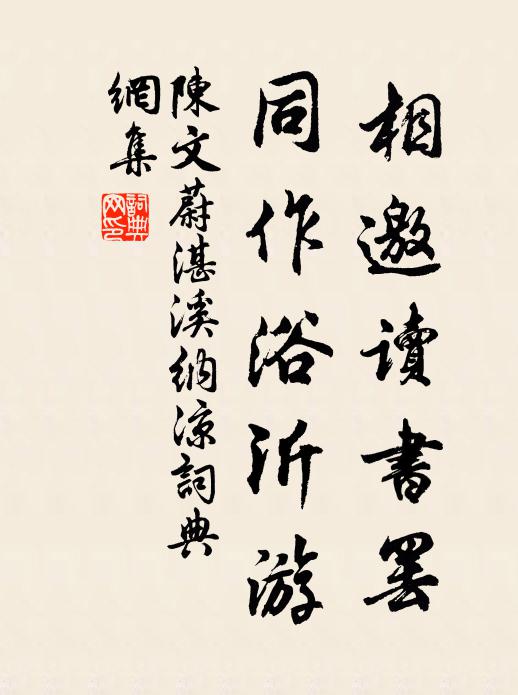 相邀讀書罢
同作浴沂游
陳文蔚湛溪纳凉詞典
網集
詞典网印